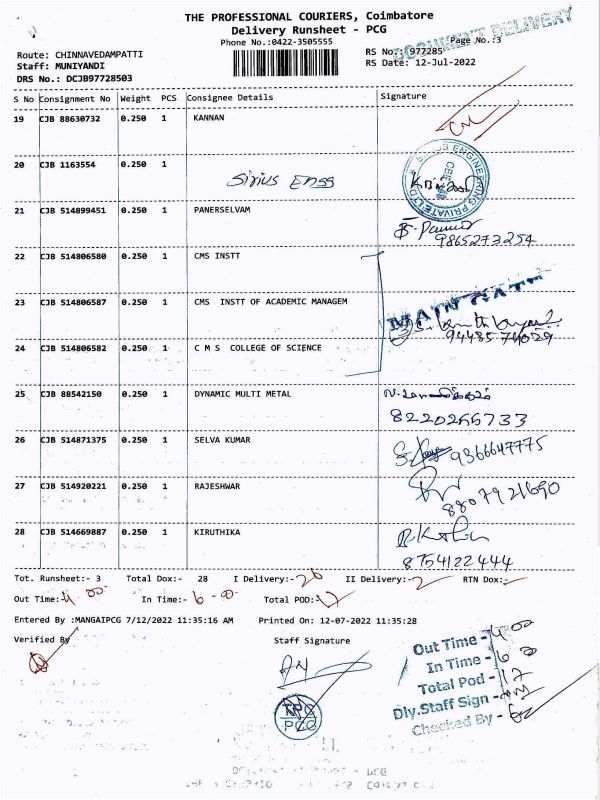 THE PROFESSIONAL COURIERS, Coimbatore
Delivery Runsheet - PCG
Phone No.:0422-3505555
DOCUMENT DELIVERY
Page No.:3
Route: CHINNAVEDAMPATTI
RS No.: 977285
Staff: MUNIYANDI
RS Date: 12-Jul-2022
DRS No.: DCJB97728503
S No Consignment No Weight PCS Consignee Details Signature
19 CJB 88630732 0.250 1 KANNAN
20 CJB 1163554 0.250 1
Sirius Engg
SIRIUS ENGINEERING PRIVATE LTD
CBE
21 CJB 514899451 0.250 1 PANERSELVAM
9865273254
22 CJB 514806580 0.250 1 CMS INSTT
23 CJB 514806587 0.250 1 CMS INSTT OF ACADEMIC MANAGEM
9448574029
24 CJB 514806582 0.250 1 C M S COLLEGE OF SCIENCE
25 CJB 88542150 0.250 1 DYNAMIC MULTI METAL
8220255733
26 CJB 514871375 0.250 1 SELVA KUMAR
9366647775
27 CJB 514920221 0.250 1 RAJESHWAR
8807921690
28 CJB 514669887 0.250 1 KIRUTHIKA
8754122444
Tot. Runsheet:- 3 Total Dox:- 28 I Delivery:- 26 II Delivery:- 2 RTN Dox:-
Out Time:- 4 00 In Time:- 6-00 Total POD:- 17
Entered By :MANGAIPCG 7/12/2022 11:35:16 AM Printed On: 12-07-2022 11:35:28
Verified By Staff Signature
Out Time - 4 00
In Time - 6 00
Total Pod - 17
Dly.Staff Sign -
Checked By -
TPC
PCG